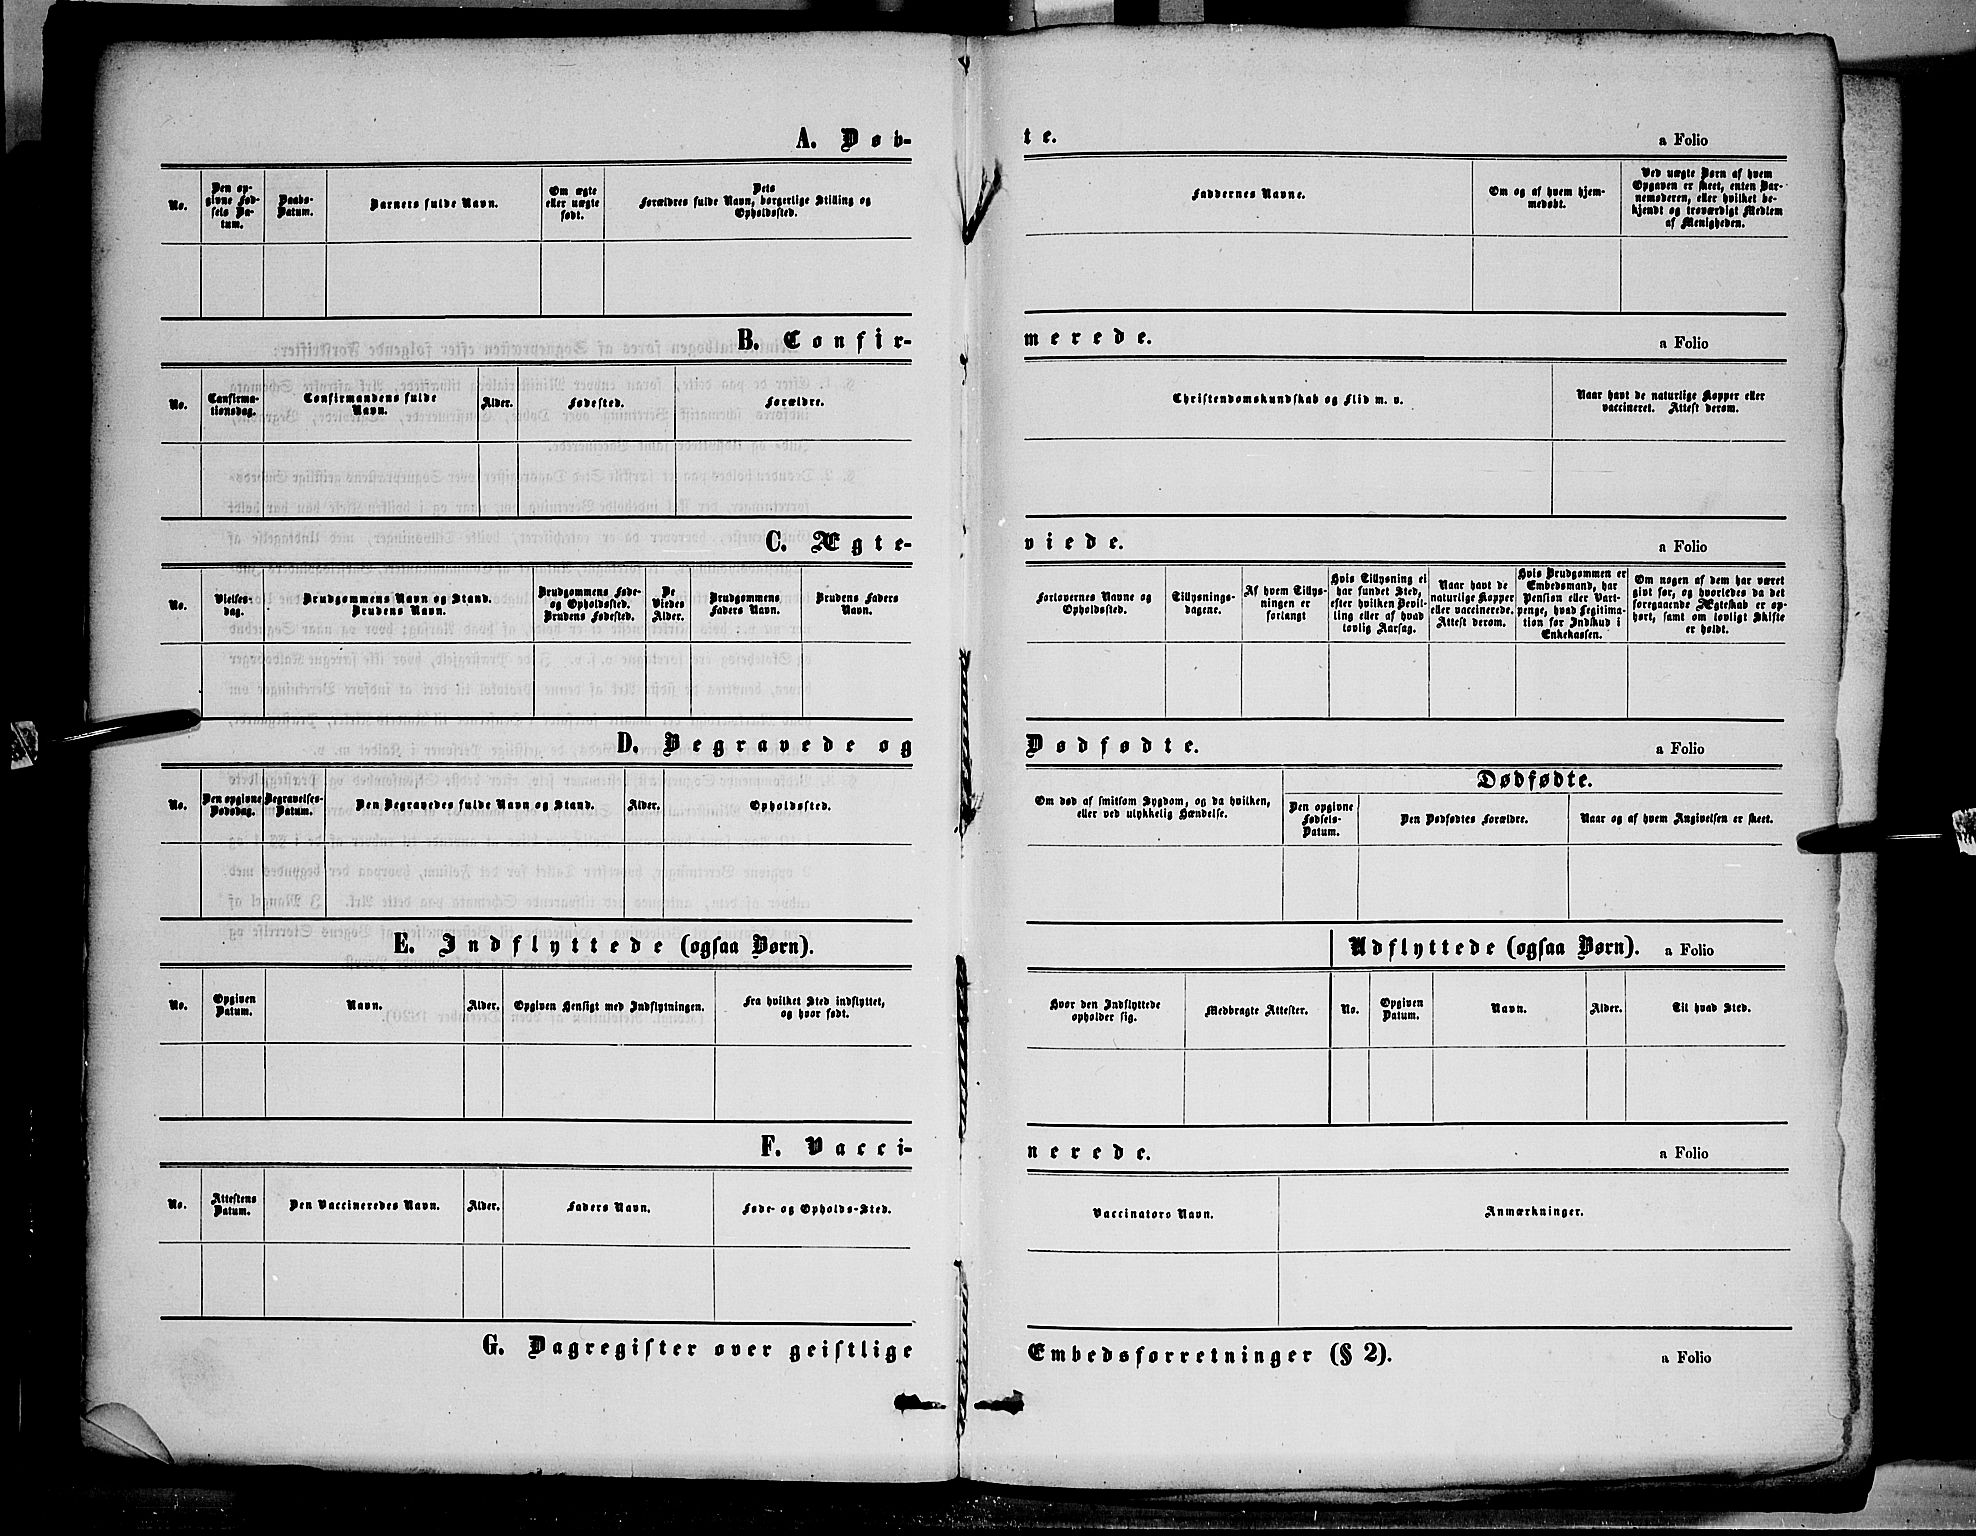 A. Døb-
te.
a Folio
No.
Den op-
givne Fød-
sels Da-
tum.
Daabs-
Datum.
Barnets fulde Navn.
Om ægte
eller uægte
født.
Dets
Forældres fulde Navn, borgerlige Stilling og
Opholdssted.
Faddernes Navne.
Om og af hvem hjem-
medøbt.
Ved uægte Børn af hvem
Opgaven er skeet, enten Bar-
nemoderen, eller hvilket be-
kjendt og troværdigt Medlem
af Menigheden.
B. Confir-
merede.
a Folio
No.
Confirma-
tionsdag.
Confirmandens fulde
Navn.
Alder.
Fødested.
Forældre.
Christendomskundskab og Flid m. v.
Naar havt de naturlige Kopper eller
vaccineret. Attest derom.
C. Ægte-
viede.
a Folio
No.
Vielses-
dag.
Brudgommens Navn og Stand.
Brudens Navn.
Brudgommens Føde-
og Opholdssted.
Brudens Fødested.
De
Viedes
Alder.
Brudgommens
Faders Navn.
Brudens Faders
Navn.
Forlovernes Navne og
Opholdssted.
Tillysnings-
dagene.
Af hvem Tillys-
ningen er
forlangt
Hvis Tillysning ei
har fundet Sted,
efter hvilken Bevil-
ling eller af hvad
lovlig Aarsag.
Naar havt de
naturlige Kopper
eller vaccinerede.
Attest derom.
Hvis Brudgommen er
Embedsmand, har
Pension eller Vart-
penge, hvad Legitima-
tion for Indskud i
Enkekassen.
Om nogen af dem har været
givt før, og hvorledes da det
foregaaende Ægteskab er op-
hørt, samt om lovligt Skifte
er holdt.
D. Begravede og
Dødfødte.
a Folio
No.
Den opgivne
Dødsdag.
Begravelses-
Datum.
Den Begravedes fulde Navn og Stand.
Alder.
Opholdssted.
Om død af smitsom Sygdom, og da hvilken,
eller ved ulykkelig Hændelse.
Dødfødte.
Den opgivne
Fødsels-
Datum.
Den Dødfødtes Forældre.
Naar og af hvem Angivelsen er skeet.
E. Indflyttede (ogsaa Børn).
Udflyttede (ogsaa Børn).
a Folio
No.
Opgiven
Datum.
Navn.
Alder.
Opgiven Hensigt med Indflytningen.
Fra hvilket Sted indflyttet,
og hvor født.
Hvor den Indflyttede
opholder sig.
Medbragte Attester.
No.
Opgiven
Datum.
Navn.
Alder.
Til hvad Sted.
F. Vacci-
nerede.
a Folio
No.
Attestens
Datum.
Den Vaccineredes Navn.
Alder.
Faders Navn.
Føde- og Opholds-Sted.
Vaccinators Navn.
Anmærkninger.
G. Dagregister over geistlige
Embedsforretninger (§ 2).
a Folio